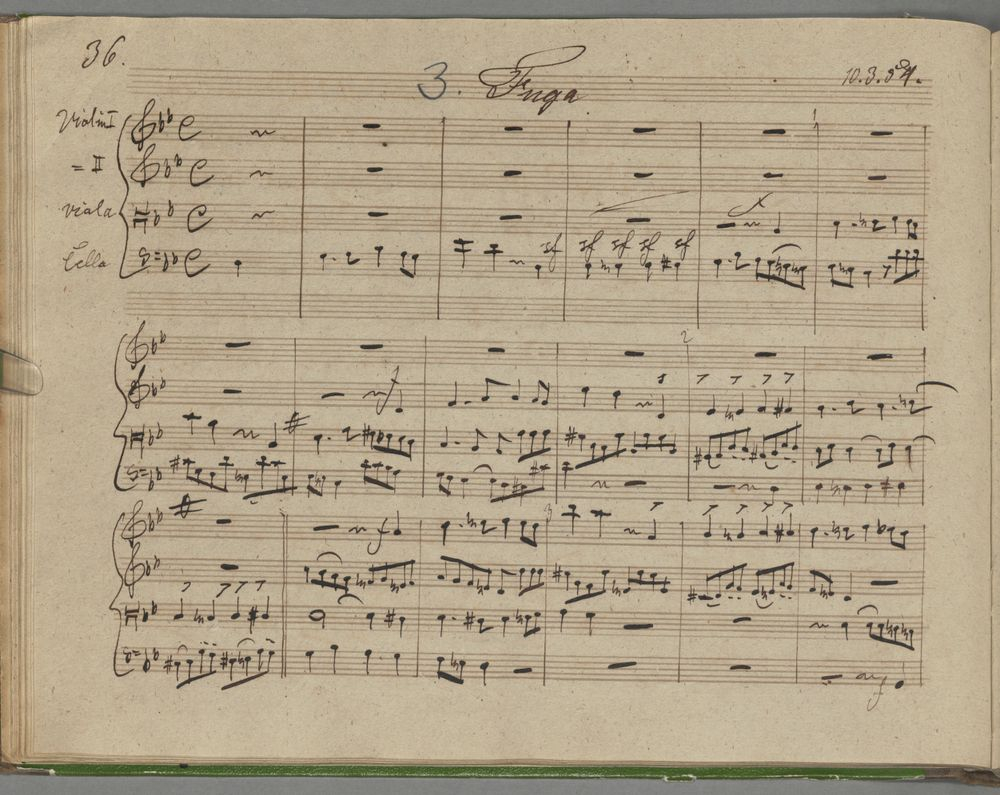 36.
3. Fuga
10.3.84.
Violin I
= II
Viola
Cello
sf sf sf sf sf
f
1
2
f
3
f
f